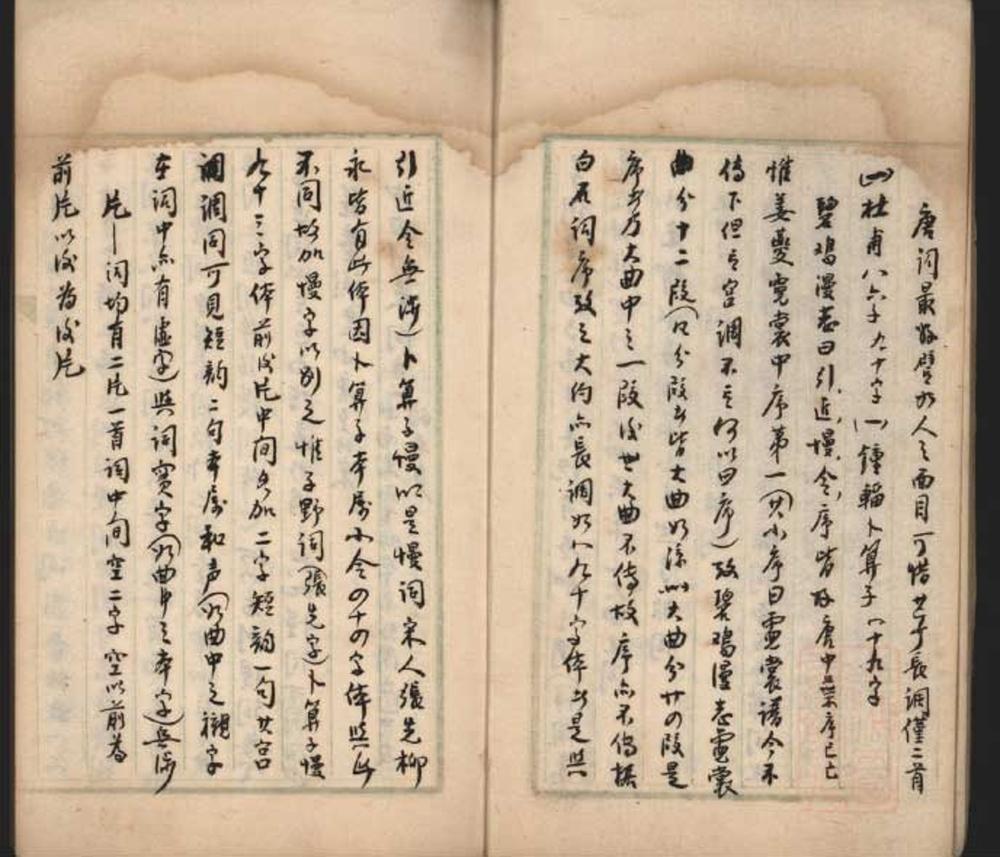 唐词最好譬如人之面目可惜廿于長調僅二首
(一)杜甫八六子九十字(一)鍾輻卜算子八十九字
碧鸡漫志曰引、近、慢、令、序皆起唐中葉序已亡
惟姜夔霓裳中序第一(其小序曰霓裳谱今不
傳下但言宫調不言何以曰序)致碧鸡漫志霓裳
曲分十二段(只分段者皆大曲如凉州大曲分廿四段是
序者乃大曲中之一段後世大曲不傳故序亦不傳據
白石词序致之大約亦長調如八九十字体者是與
引近令無涉)卜算子慢以是慢词宋人張先柳
永皆有此体因卜算子本属小令四十四字体與此
不同故加慢字以别之惟子野词(張先字)卜算子慢
九十三字体前後片中间各加二字短韵一句其宫
調調同可見短韵二句本属和声(如曲中之襯字
在词中亦有虚字)與词实字(如曲中之本字)無涉
片—词均有二片一首词中间空二字空以前為
前片以後為後片